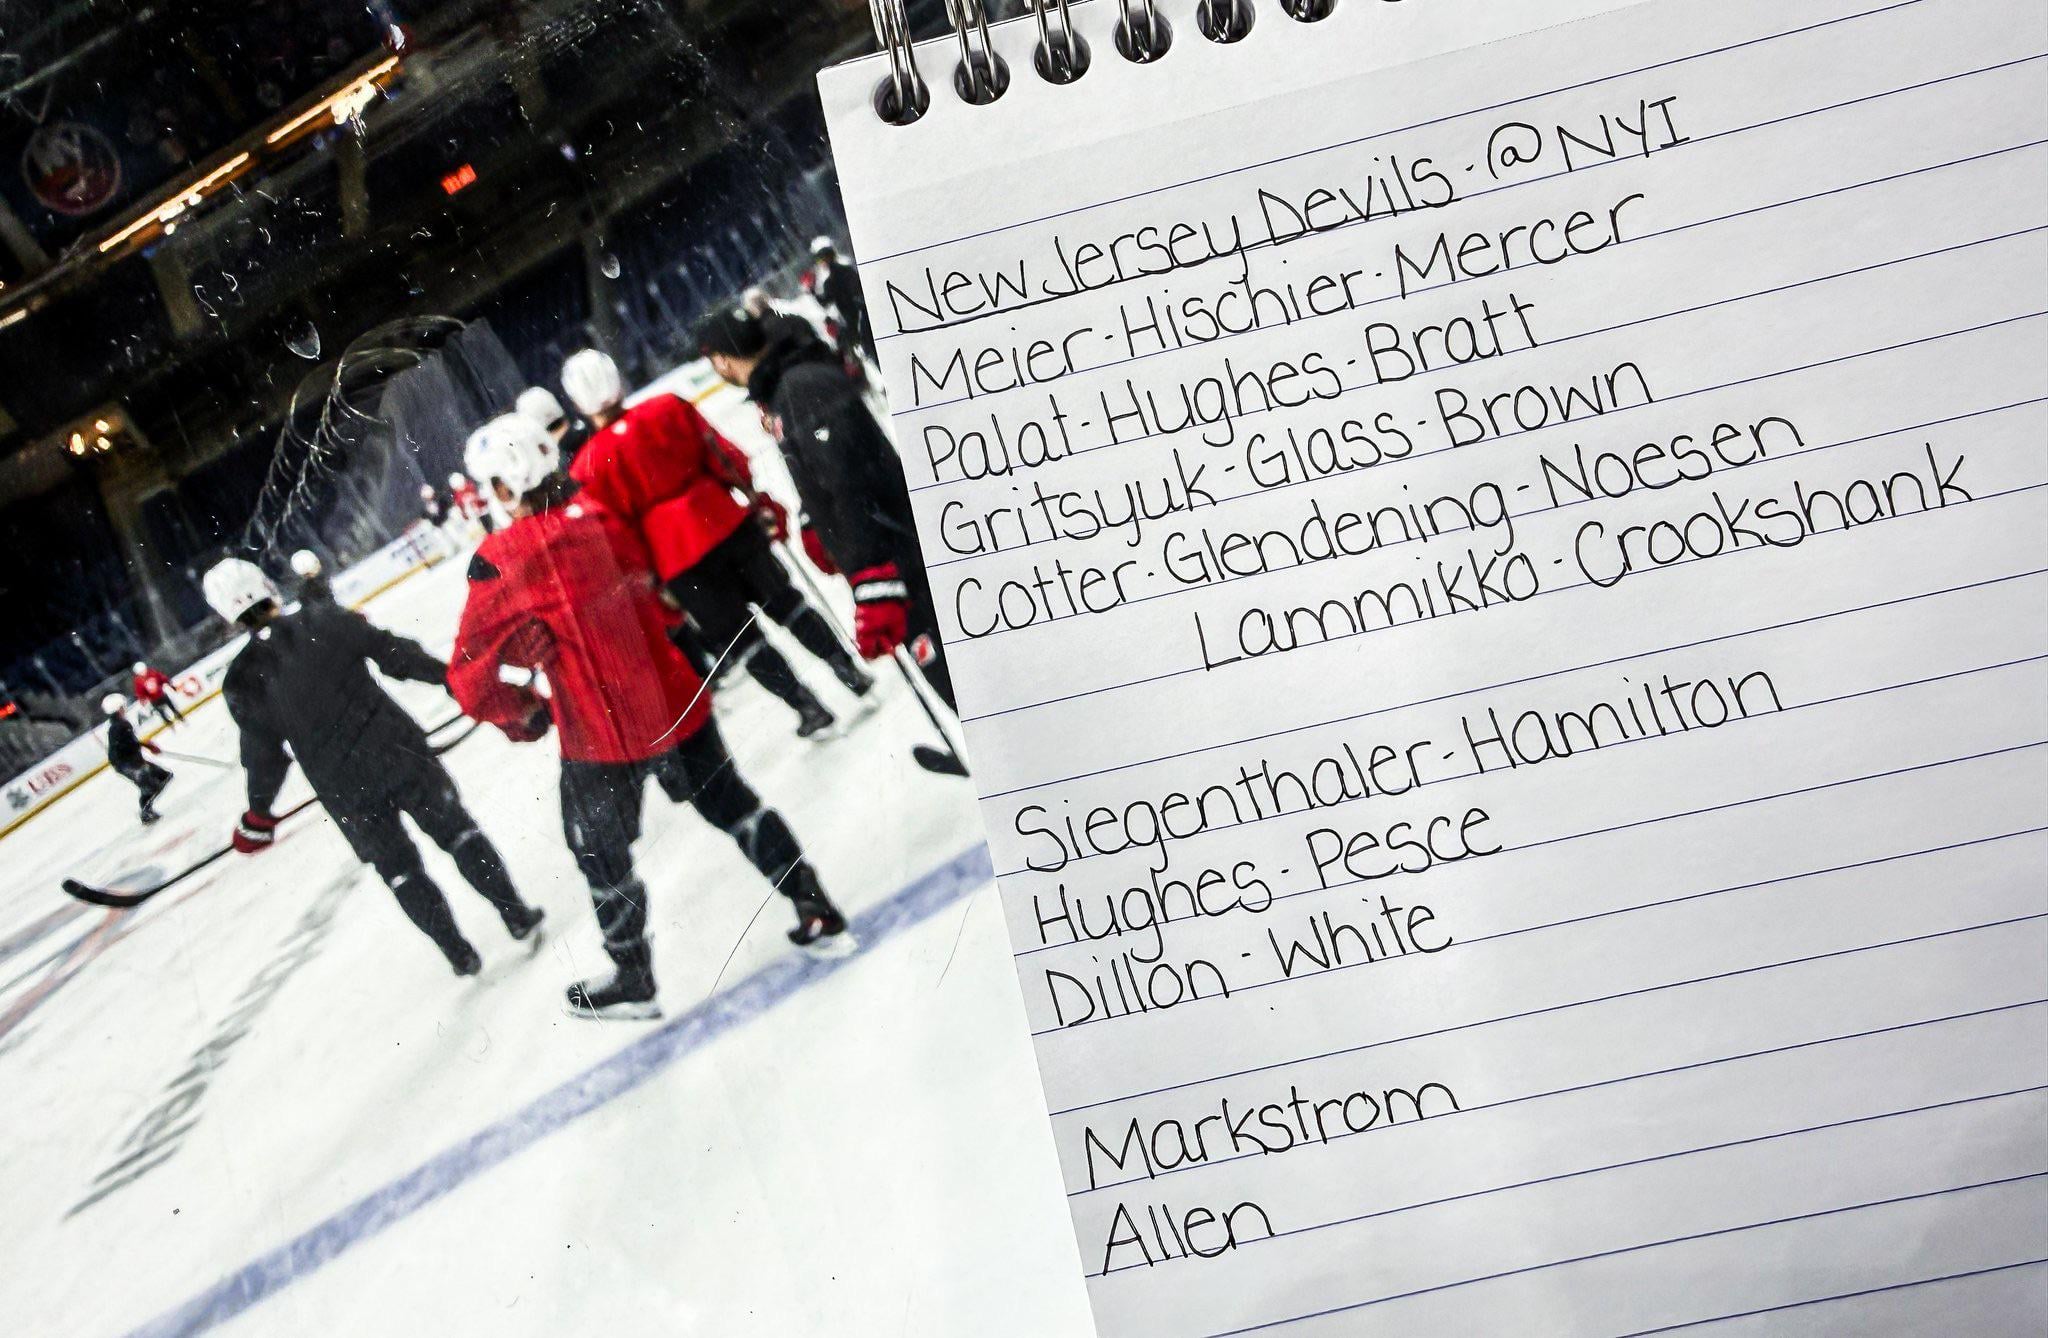 New Jersey Devils · @ NYI
Meier · Hischier · Mercer
Palat · Hughes · Bratt
Gritsyuk · Glass · Brown
Cotter · Glendening · Noesen
Lammikko · Crookshank
Siegenthaler · Hamilton
Hughes · Pesce
Dillon · White
Markstrom
Allen
UBS